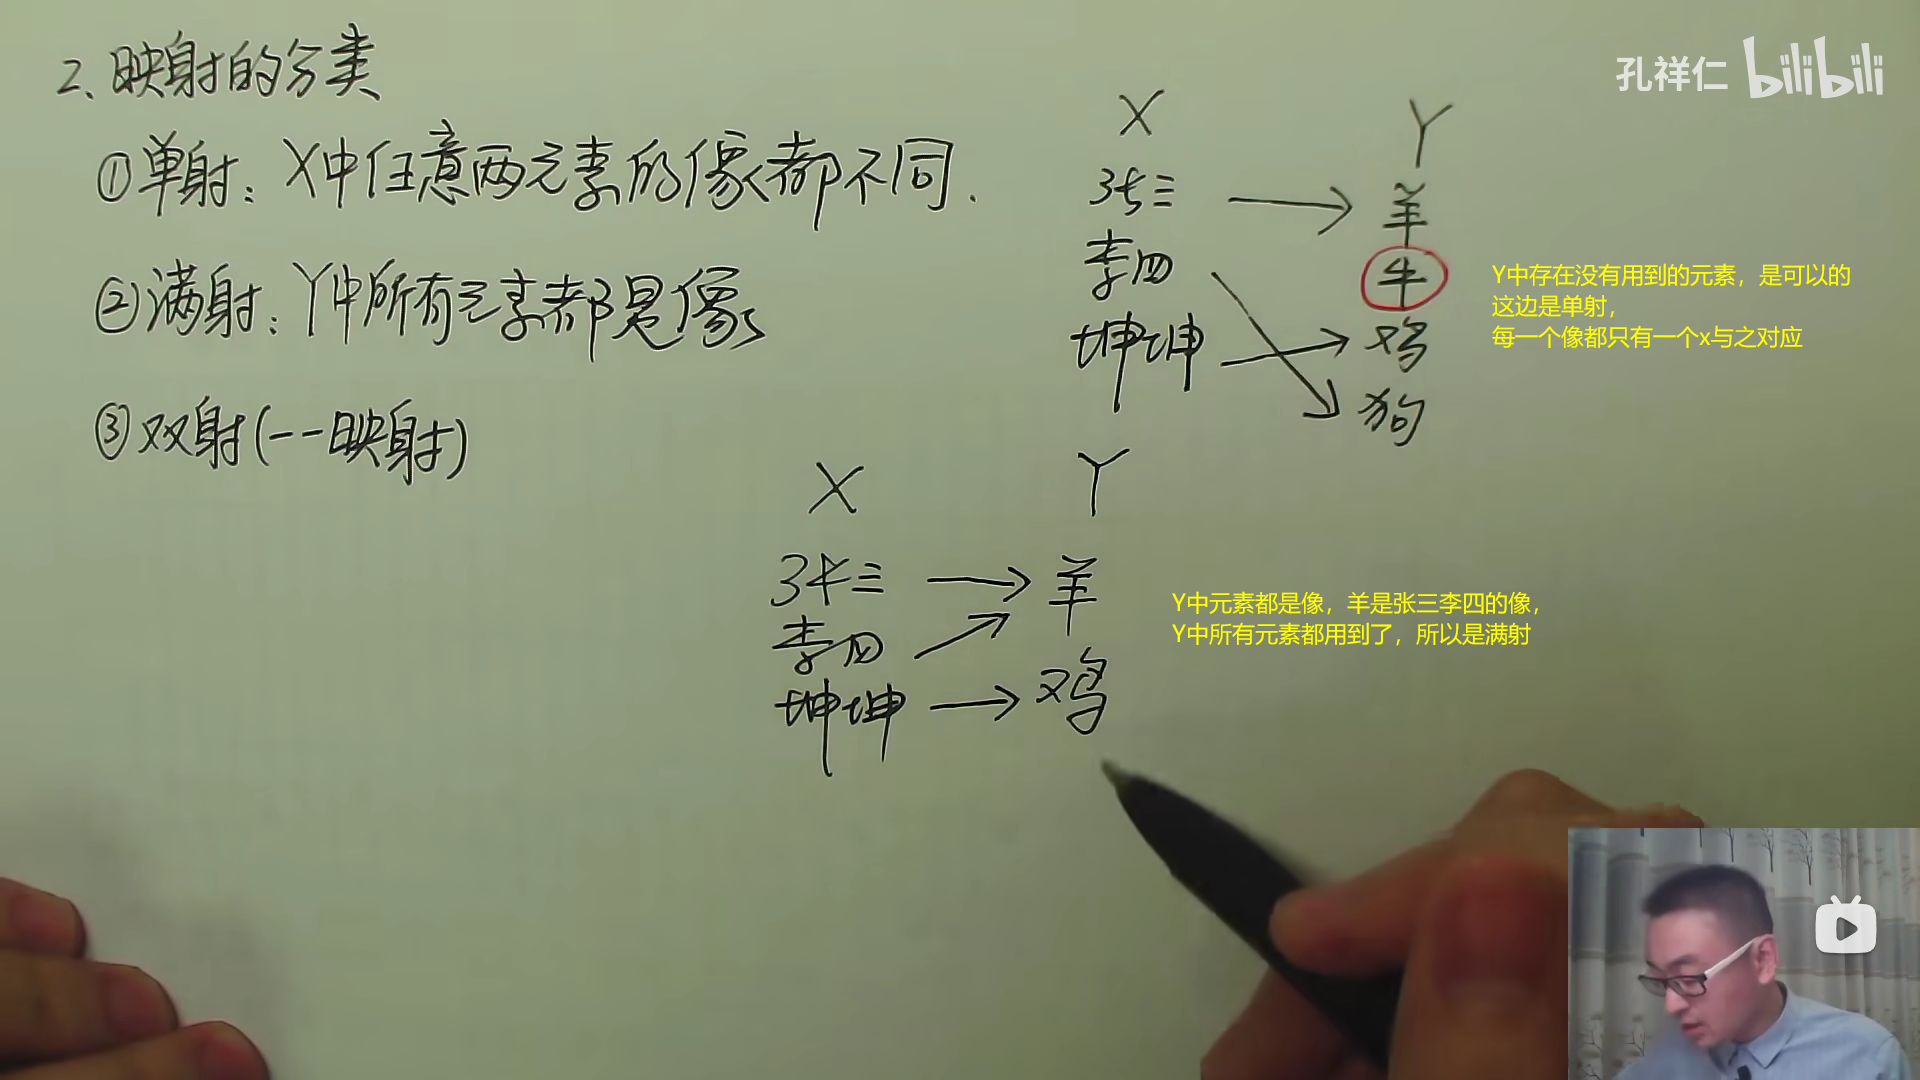 2、映射的分类
①单射：X中任意两元素的像都不同.
②满射：Y中所有元素都是像
③双射(一一映射)
孔祥仁 bilibili
X Y
张三 羊
李四 牛
坤坤 鸡
狗
Y中存在没有用到的元素，是可以的
这边是单射，
每一个像都只有一个x与之对应
X Y
张三 羊
李四
坤坤 鸡
Y中元素都是像，羊是张三李四的像，
Y中所有元素都用到了，所以是满射